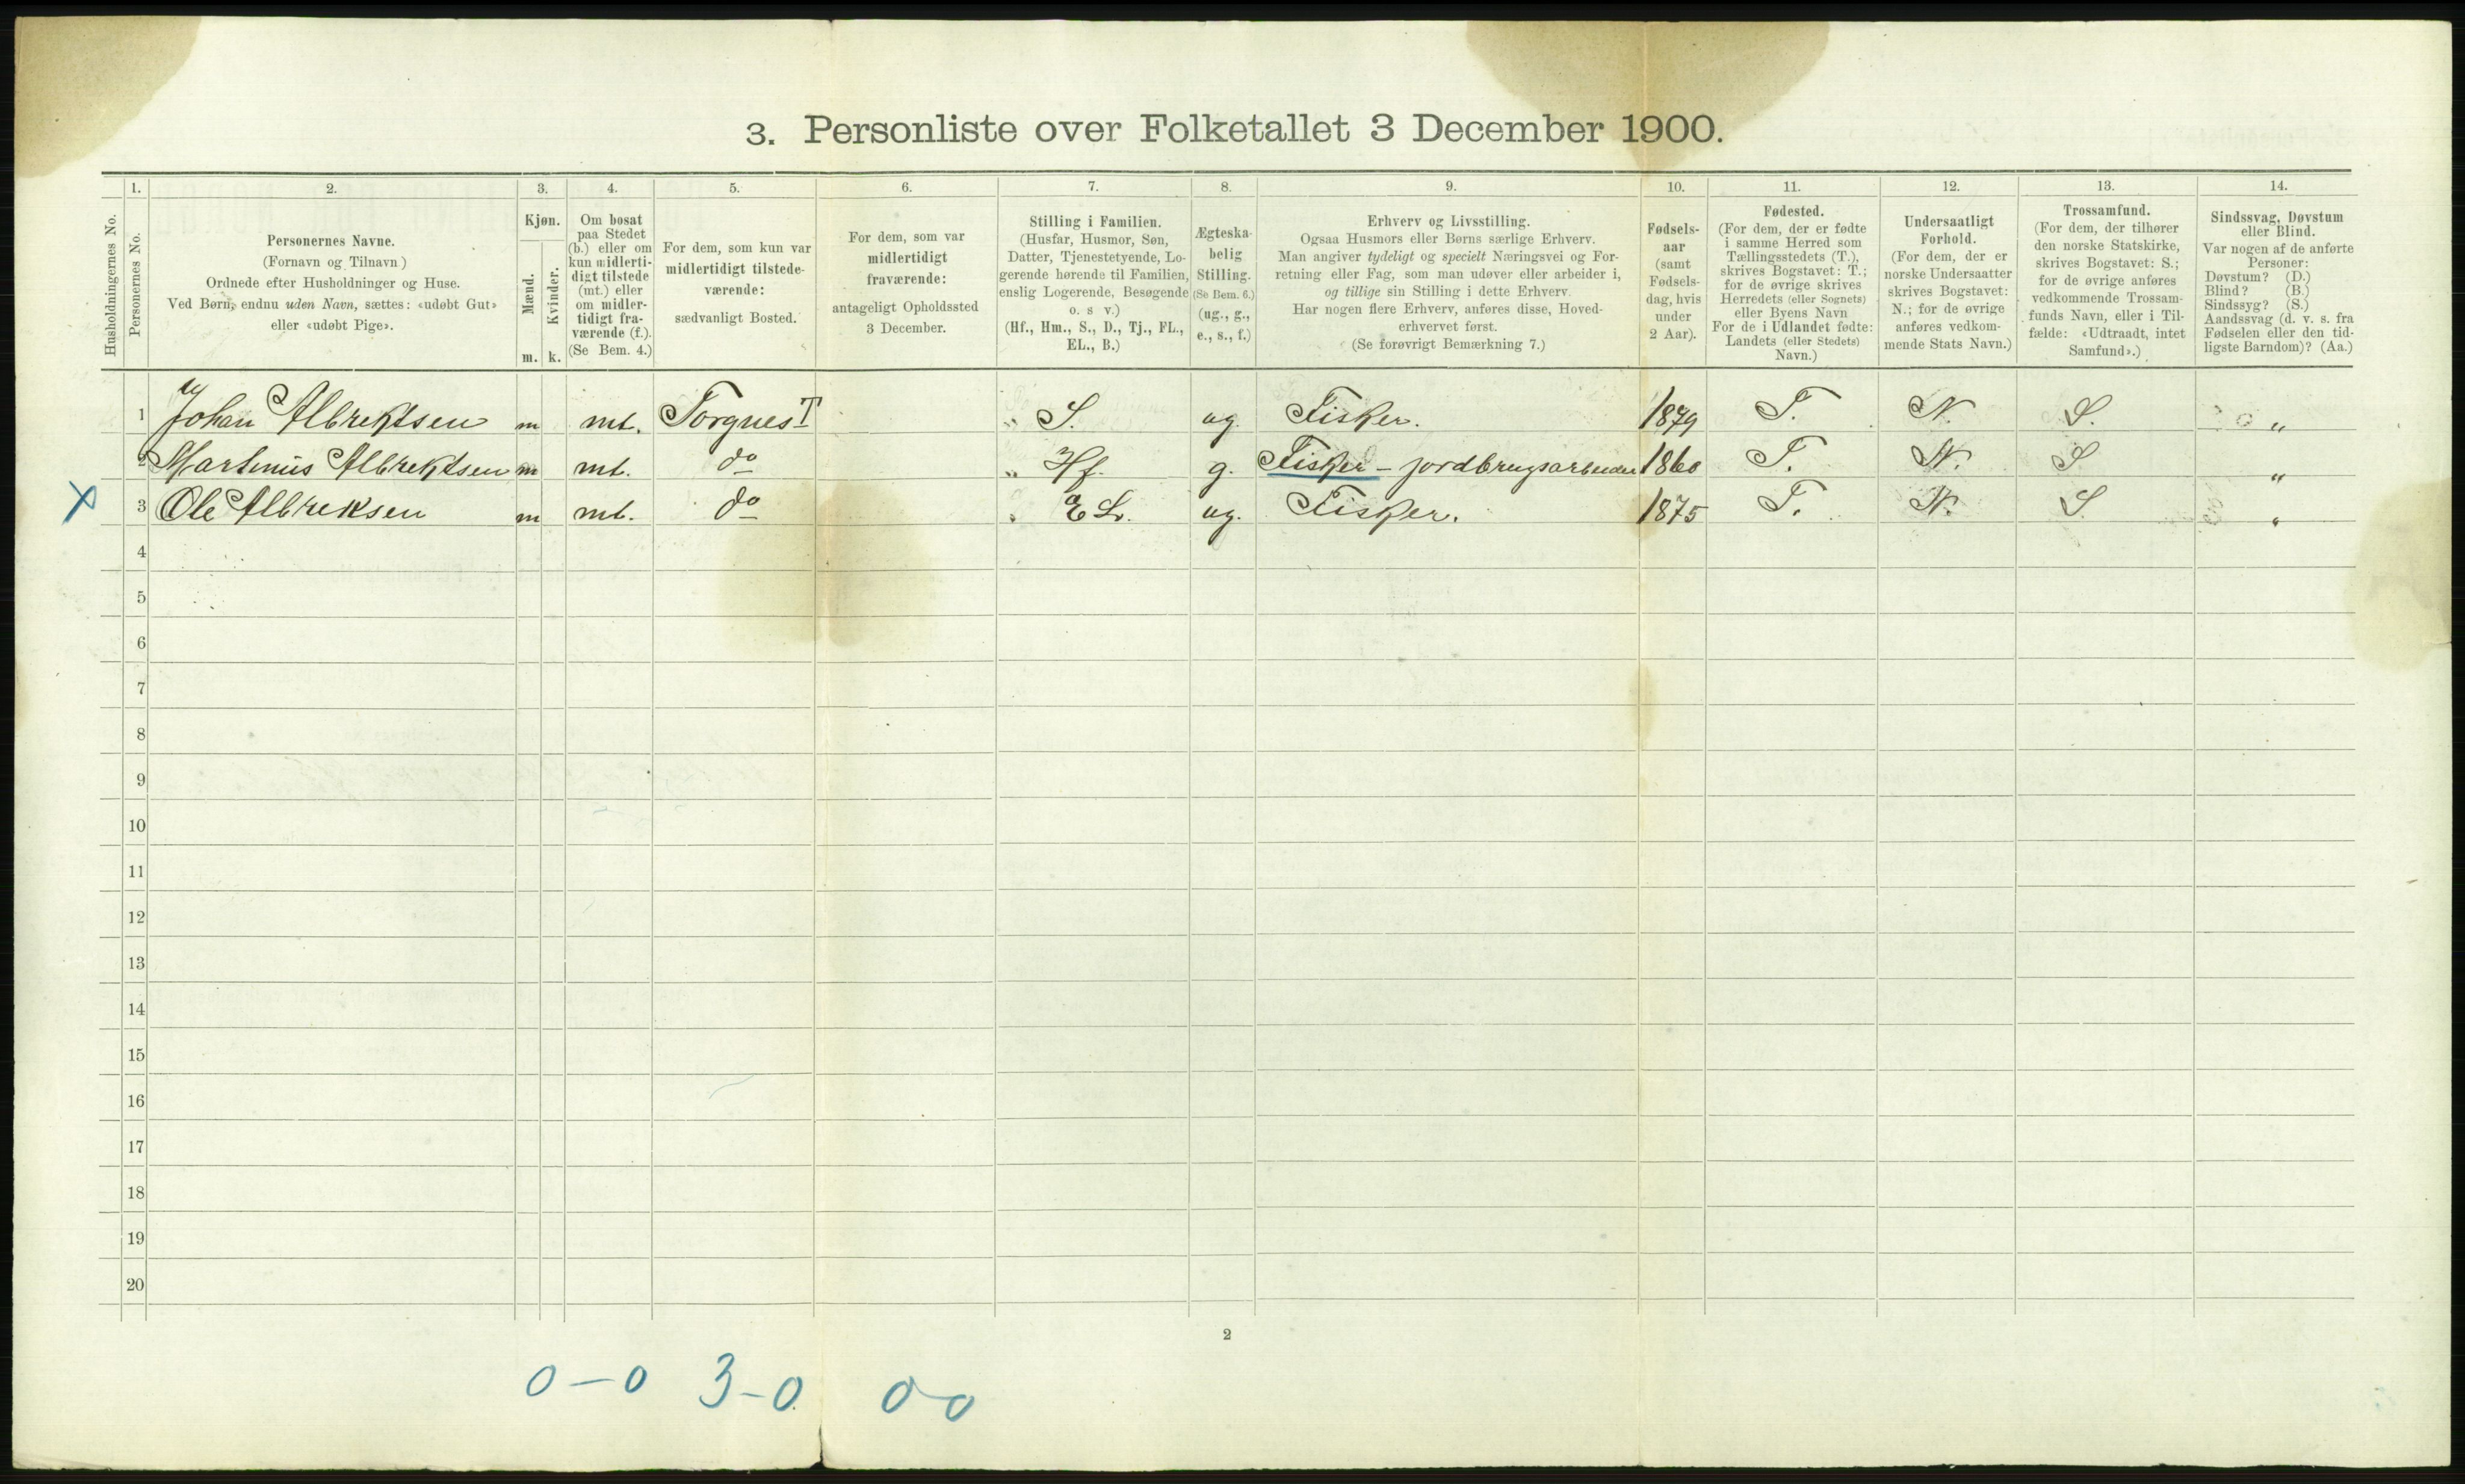 3. Personliste over Folketallet 3 December 1900.
Husholdningernes No.
1.
Personernes No.
2.
Personernes Navne.
(Fornavn og Tilnavn.)
Ordnede efter Husholdninger og Huse.
Ved Børn, endnu uden Navn, sættes: «udøbt Gut»
eller «udøbt Pige».
3.
Kjøn.
Mænd.
Kvinder.
m. k.
4.
Om bosat
paa Stedet
(b.) eller om
kun midlerti-
digt tilstede
(mt.) eller
om midler-
tidigt fra-
værende (f.).
(Se Bem. 4.)
5.
For dem, som kun var
midlertidigt tilstede-
værende:
sædvanligt Bosted.
6.
For dem, som var
midlertidigt
fraværende:
antageligt Opholdssted
3 December.
7.
Stilling i Familien.
(Husfar, Husmor, Søn,
Datter, Tjenestetyende, Lo-
gerende hørende til Familien,
enslig Logerende, Besøgende
o. s v.)
(Hf., Hm., S., D., Tj., FL.,
EL., B.)
8.
Ægteska-
belig
Stilling.
(Se Bem. 6.)
(ug., g.,
e., s., f.)
9.
Erhverv og Livsstilling.
Ogsaa Husmors eller Børns særlige Erhverv.
Man angiver tydeligt og specielt Næringsvei og For-
retning eller Fag, som man udøver eller arbeider i,
og tillige sin Stilling i dette Erhverv.
Har nogen flere Erhverv, anføres disse, Hoved-
erhvervet først.
(Se forøvrigt Bemærkning 7.)
10.
Fødsels-
aar
(samt
Fødsels-
dag, hvis
under
2 Aar).
11.
Fødested.
(For dem, der er fødte
i samme Herred som
Tællingsstedets (T.),
skrives Bogstavet: T.;
for de øvrige skrives
Herredets (eller Sognets)
eller Byens Navn
For de i Udlandet fødte:
Landets (eller Stedets)
Navn.)
12.
Undersaatligt
Forhold.
(For dem, der er
norske Undersaatter
skrives Bogstavet:
N.; for de øvrige
anføres vedkom-
mende Stats Navn.)
13.
Trossamfund.
(For dem, der tilhører
den norske Statskirke,
skrives Bogstavet: S.;
for de øvrige anføres
vedkommende Trossam-
funds Navn, eller i Til-
fælde: «Udtraadt, intet
Samfund».)
14.
Sindssvag, Døvstum
eller Blind.
Var nogen af de anførte
Personer:
Døvstum? (D.)
Blind? (B.)
Sindssyg? (S.)
Aandssvag (d. v. s. fra
Fødselen eller den tid-
ligste Barndom)? (Aa.)
1 Johan Albrektsen m mt. Torgnes T S. ug. Fisker. 1879 T. N. S. „
2 Martinus Albrektsen m mt. do Hf. g. Fisker - jordbrugsarbeider 1860 T. N. S „
x 3 Ole Albreksen m mt. do EL. ug. Fisker. 1875 T. N. S „
4
5
6
7
8
9
10
11
12
13
14
15
16
17
18
19
20
2
0-0 3-0 0-0